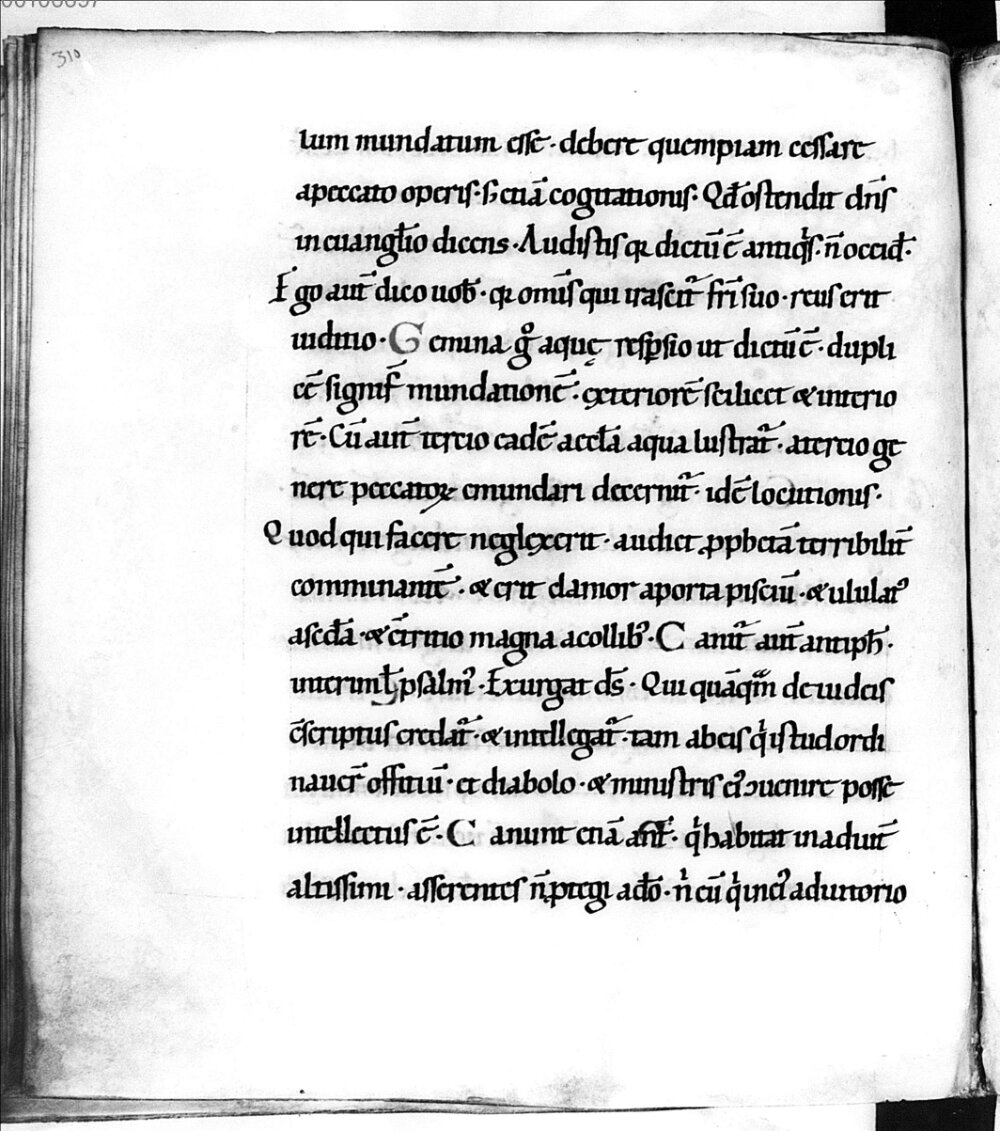 310
lum mundatum esse · debere quempiam cessare
a peccato operis · s; etiā cogitationis · Qđ ostendit dn̄s
in euangl̄io dicens · Audistis qꝛ dictū ē antiqͥs · n̄ occid̄ ·
Ego aut̄ dico uob̄ · qꝛ omīs qui irascit᷑ fr̄i suo · reus erit
iuditio · Gemina gͦ aquę respsio ut dictū ē · dupli
cē signif̄ mundationē · ęxteriorē scilicet & interio
rē · Cū aut̄ tercio eadē accl̄a aqua lustrat᷑ · a tercio ge
nere peccatoꝝ emundari decernit᷑ · idē locutionis ·
Quod qui facere neglęxerit · audiet ꝓpphetiā terribilit̄
comminantē · & erit clamor a porta pisciū · & ululatꝰ
a scd̄a · & c̄tritio magna a collibꝰ · Canit᷑ aut̄ antiph̄ ·
psalmꝰ · Exurgat ds̄ · Qui quāqͣm de iudeis
c̄scriptus credat᷑ · & intellegat᷑ · tam ab eis qͥ istud ordi
nauer̄ offitiū · et diabolo · & ministris eiꝰ ↄuenire posse
intellectus ē · Canunt etiā ant̄ · qͥ habitat in adiut̄
altissimi · asserentes n̄ ꝓtegi a dō · nͥ eū qͥ in eiꝰ adiutorio